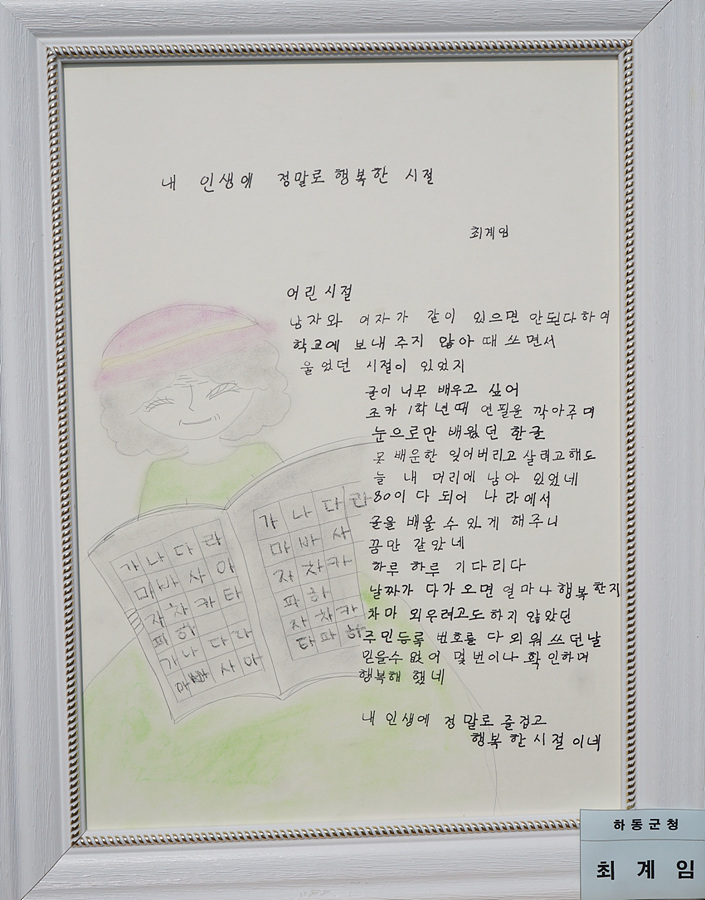 내 인생에 정말로 행복한 시절
최계임
어린 시절
남자와 여자가 같이 있으면 안된다 하여
학교에 보내 주지 않아 떼 쓰면서
울었던 시절이 있었지
글이 너무 배우고 싶어
조카 1학년때 연필을 깍아주며
눈으로만 배웠던 한글
못 배운한 잊어버리고 살려고해도
늘 내 머리에 남아 있었네
80이 다 되어 나라에서
글을 배울 수 있게 해주니
꿈만 같았네
하루 하루 기다리다
날짜가 다가 오면 얼마나 행복한지
차마 외우려고도 하지 않았던
주민등록 번호를 다 외워 쓰던날
믿을수 없어 몇 번이나 확인하며
행복해 했네
내 인생에 정말로 즐겁고
행복한 시절이네
가 나 다 라
마 바 사 아
자 차 카 타
파 하
가 나 다 라
마 사 아
가 나 다 라
마 바 사
자 차 카
파 하
자 차 카
타 파 하
하동군청
최계임